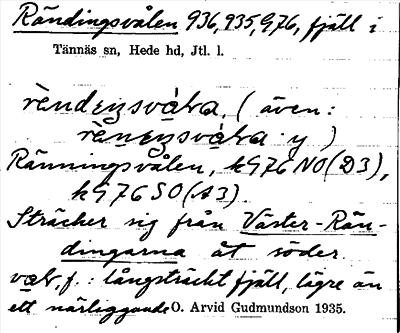 Rändingsvålen 936, 935, G76, fjäll i
Tännäs sn, Hede hd, Jtl. l.
(även:
Ränningsvålen, kG76 NO (D3),
kG76 SO (A3).
Sträcker sig från Väster-Rän-
dingarna åt söder.
f.: långsträckt fjäll, lägre än
ett närliggande O. Arvid Gudmundson 1935.